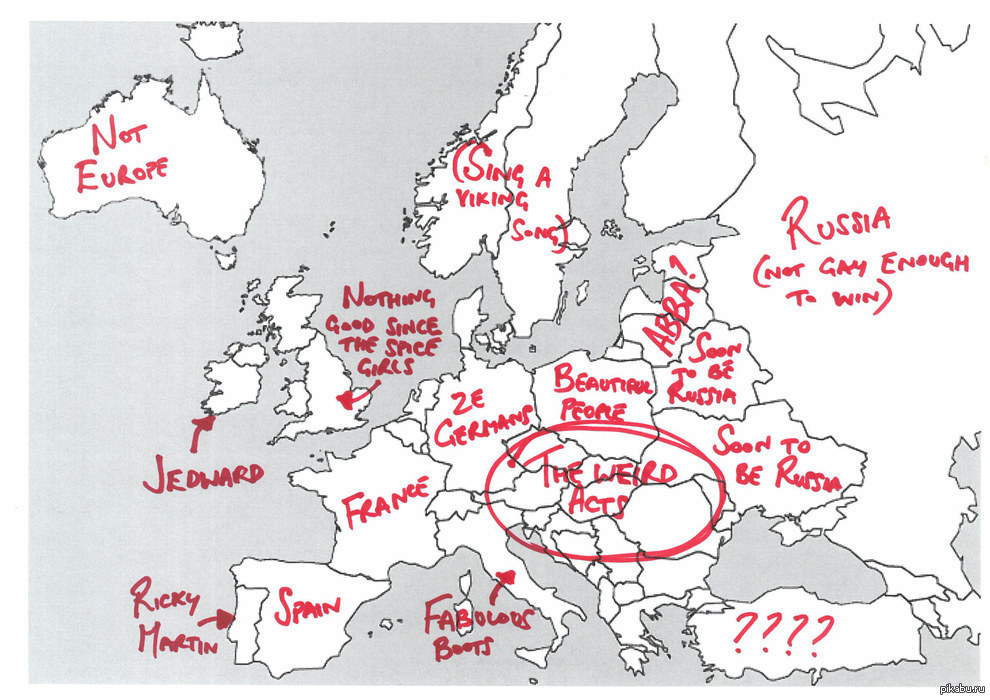 NOT
EUROPE
(SING A
VIKING
SONG)
RUSSIA
(NOT GAY ENOUGH
TO WIN)
NOTHING
GOOD SINCE
THE SPICE
GIRLS
ABBA?
SOON
TO BE
RUSSIA
BEAUTIFUL
PEOPLE
ZE
GERMANS
SOON TO
BE RUSSIA
JEDWARD
THE WEIRD
ACTS
FRANCE
RICKY
MARTIN
SPAIN
FABULOUS
BOOTS
????
pikabu.ru